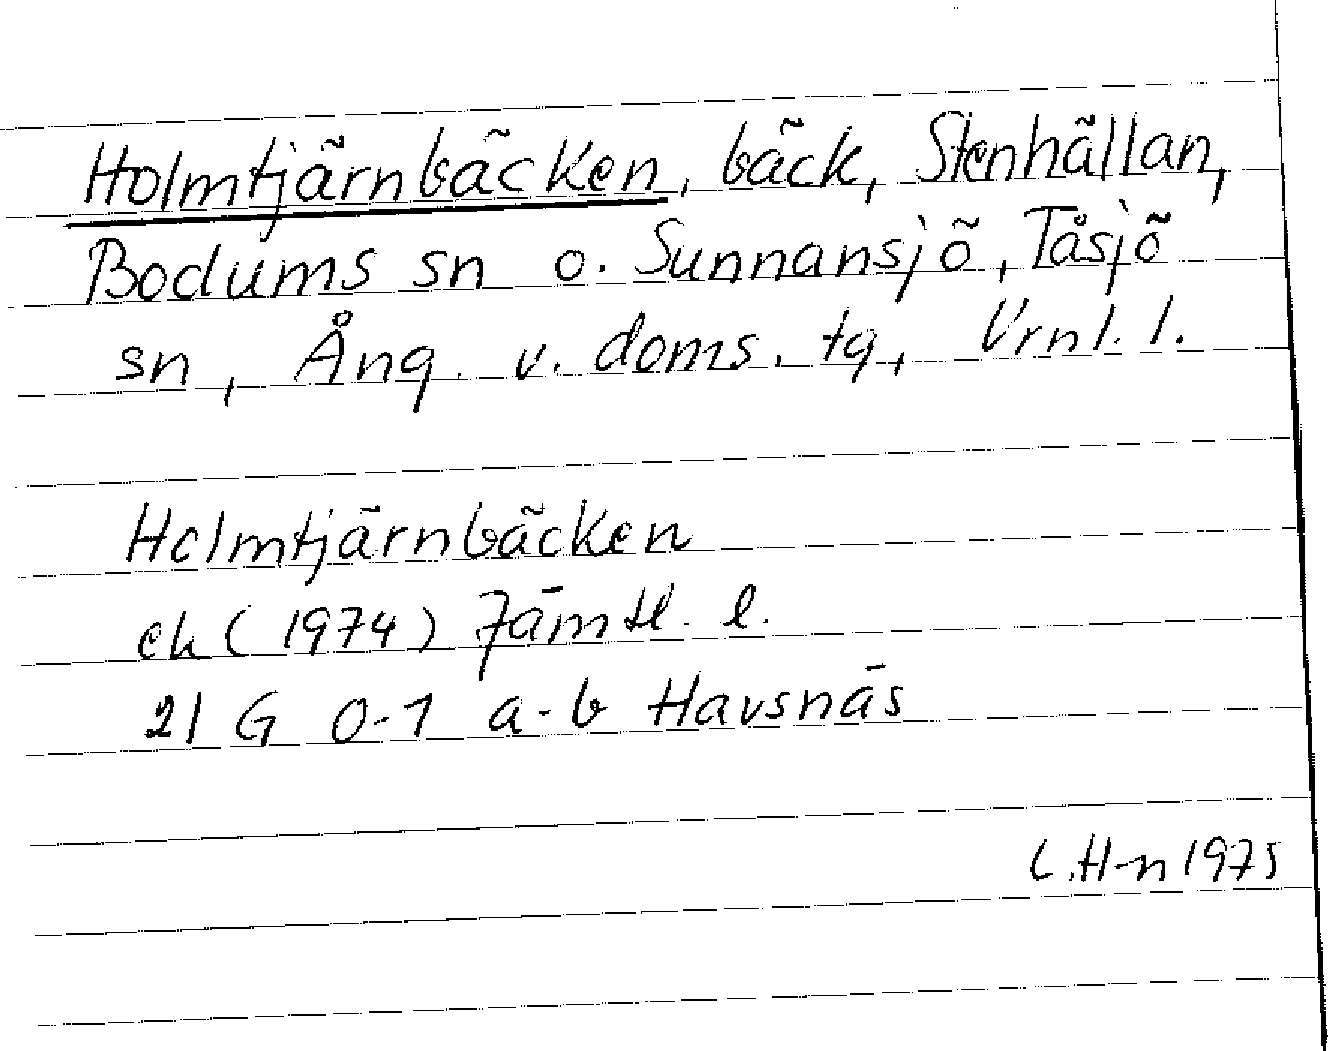 Holmtjärnbäcken, bäck, Stenhällan,
Bodums sn o. Sunnansjö, Tåsjö
sn, Ång. v. doms. tg, Vrnl. l.
Holmtjärnbäcken
ek (1974) Jämtl. l.
21 G 0-1 a-b Havsnäs
C.H-n 1975